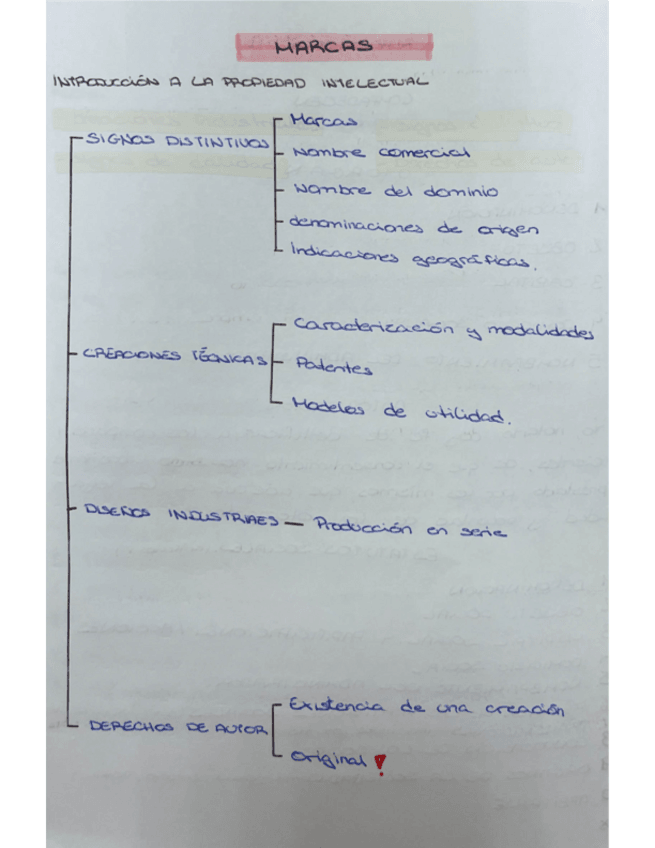 MARCAS
INTRODUCCIÓN A LA PROPIEDAD INTELECTUAL
SIGNOS DISTINTIVOS
Marcas
Nombre comercial
Nombre del dominio
denominaciones de origen
indicaciones geográficas.
CREACIONES TÉCNICAS
Caracterización y modalidades
Patentes
Modelos de utilidad.
DISEÑOS INDUSTRIAES — Producción en serie
DERECHOS DE AUTOR
Existencia de una creación
original !